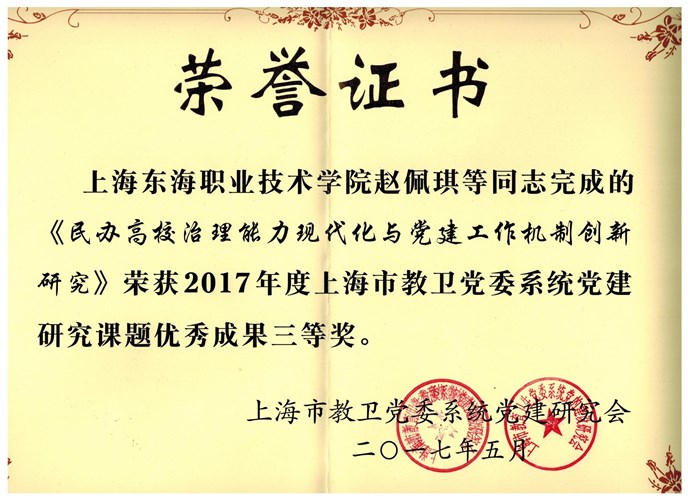 荣誉证书
上海东海职业技术学院赵佩琪等同志完成的
《民办高校治理能力现代化与党建工作机制创新
研究》荣获2017年度上海市教卫党委系统党建
研究课题优秀成果三等奖。
上海市教卫党委系统党建研究会
二〇一七年五月